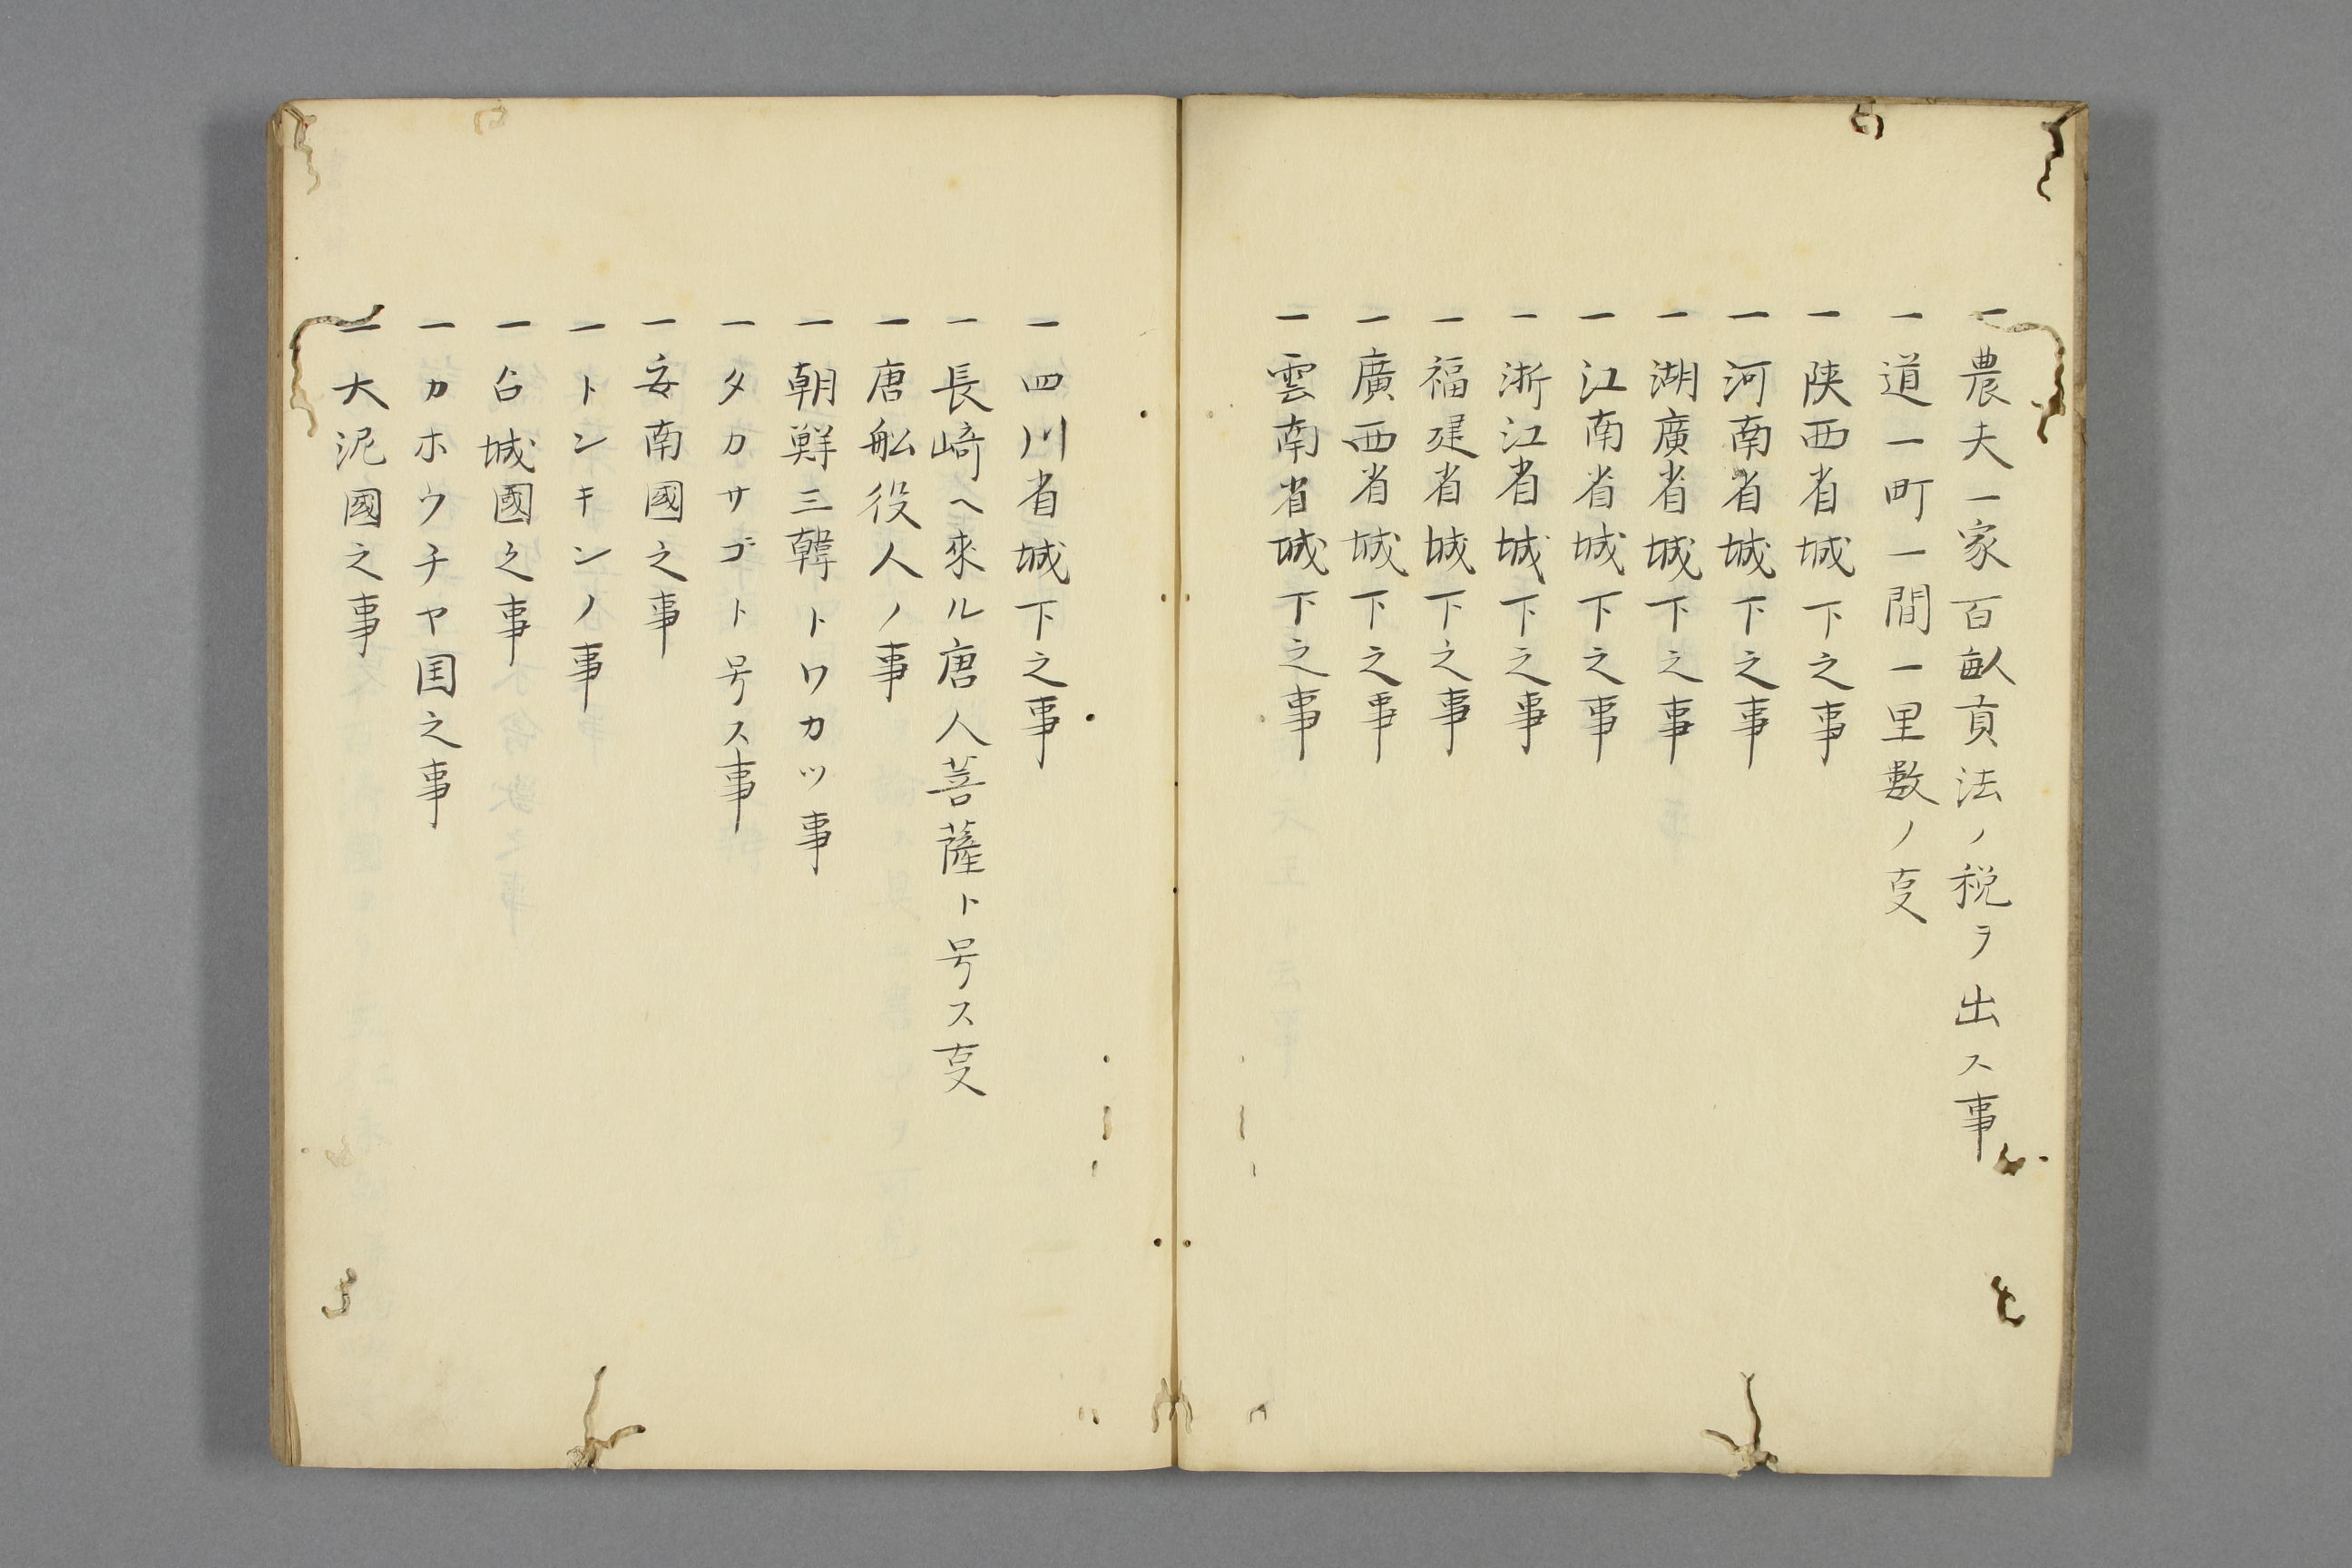 一農夫一家百畝貢法ノ税ヲ出ス事
一道一町一間一里數ノ㕝
一陕西省城下之事
一河南省城下之事
一湖廣省城下之事
一江南省城下之事
一浙江省城下之事
一福建省城下之事
一廣西省城下之事
一雲南省城下之事
一四川省城下之事
一長﨑ヘ來ル唐人菩薩ト号ス㕝
一唐舩役人ノ事
一朝鮮三韓トワカツ事
一タカサゴト号ス事
一安南國之事
一トンキンノ事
一占城國之事
一カホウチヤ国之事
一大泥國之事